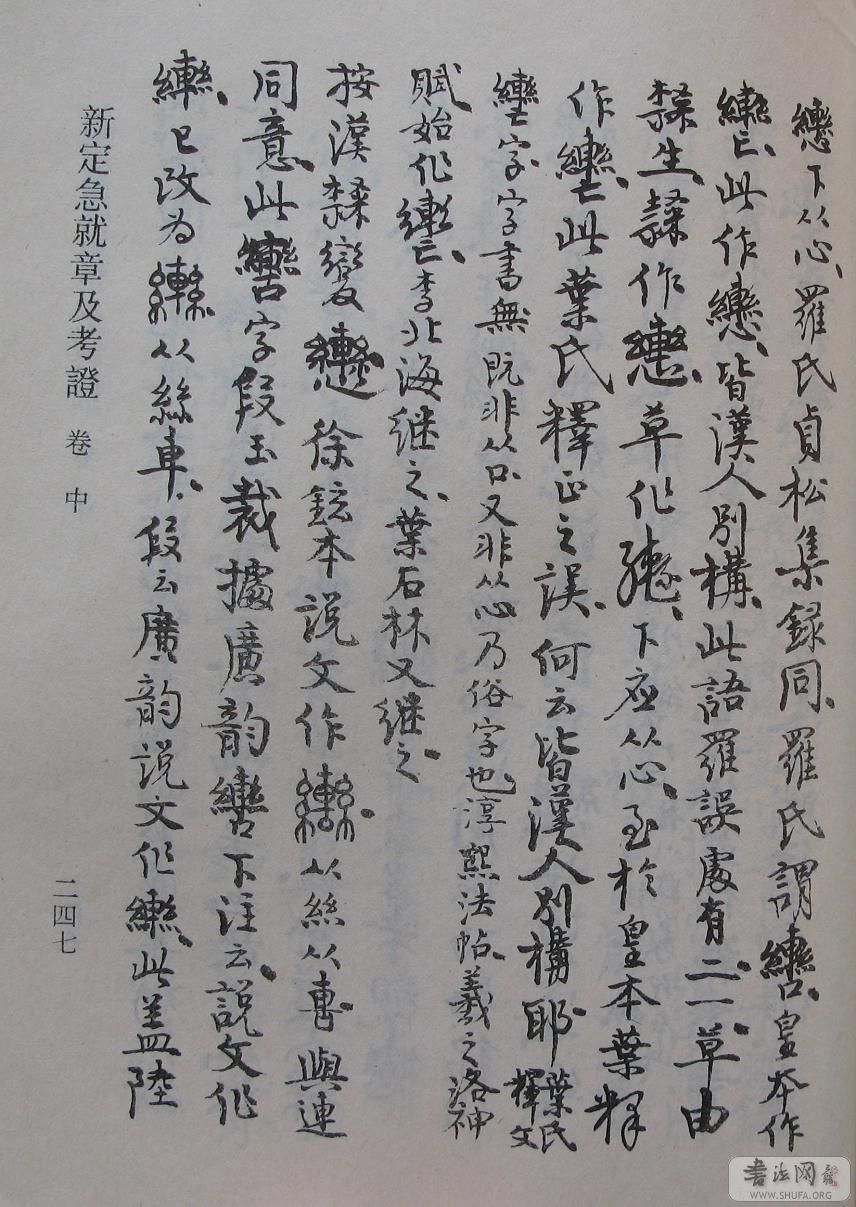 下从心、羅氏貞松集録同、羅氏謂轡、皇本作
此作 皆漢人別構、此語羅誤處有二、一、草由
隸生、隸作 草作 下应从心、至於皇本葉釋
作 此葉氏釋正之誤、何云皆漢人別構耶 葉氏釋文
字字書無既非从口又非从心乃俗字也、淳熙法帖、羲之洛神
賦始作 李北海继之、葉石林又继之、
按漢隸變 徐鉉本説文作 从絲从軎與連
同意、此轡字段玉裁據廣韵轡下注云、説文作
已改为 从絲車、段云廣韵説文作 此盖陸
新定急就章及考證 卷中
二四七
書法网
WWW.SHUFA.ORG